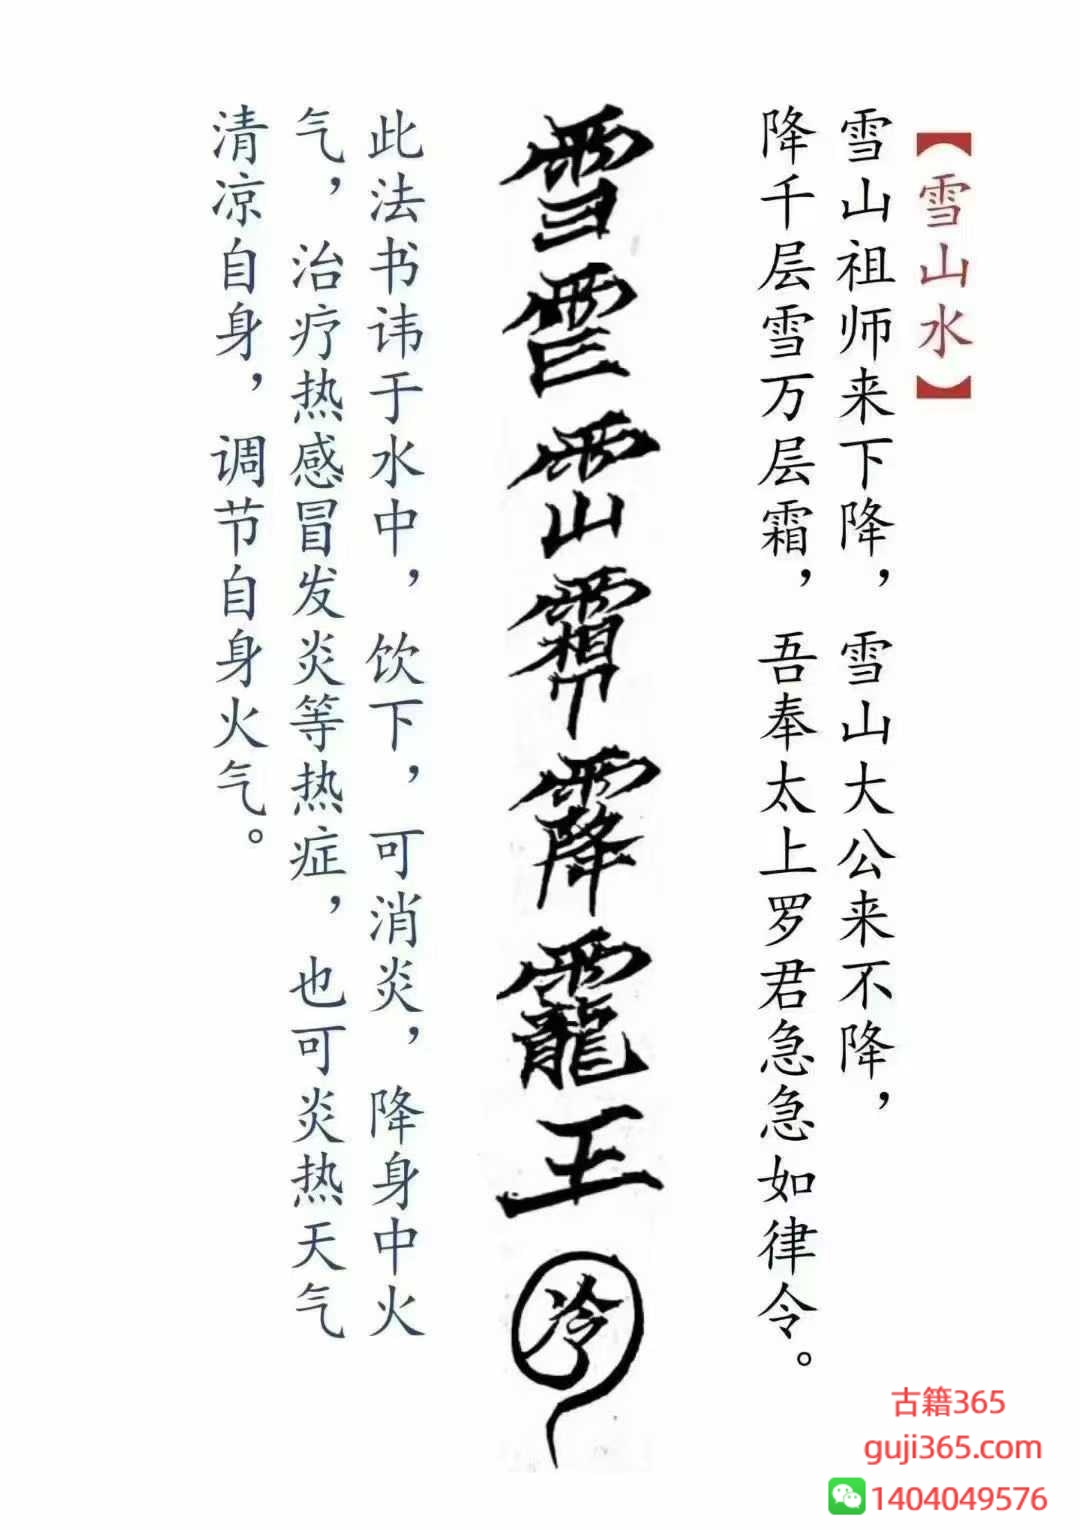 【雪山水】
雪山祖师来下降，雪山大公来不降，
降千层雪万层霜，吾奉太上罗君急急如律令。
王
冷
此法书讳于水中，饮下，可消炎，降身中火
气，治疗热感冒发炎等热症，也可炎热天气
清凉自身，调节自身火气。
古籍365
guji365.com
1404049576